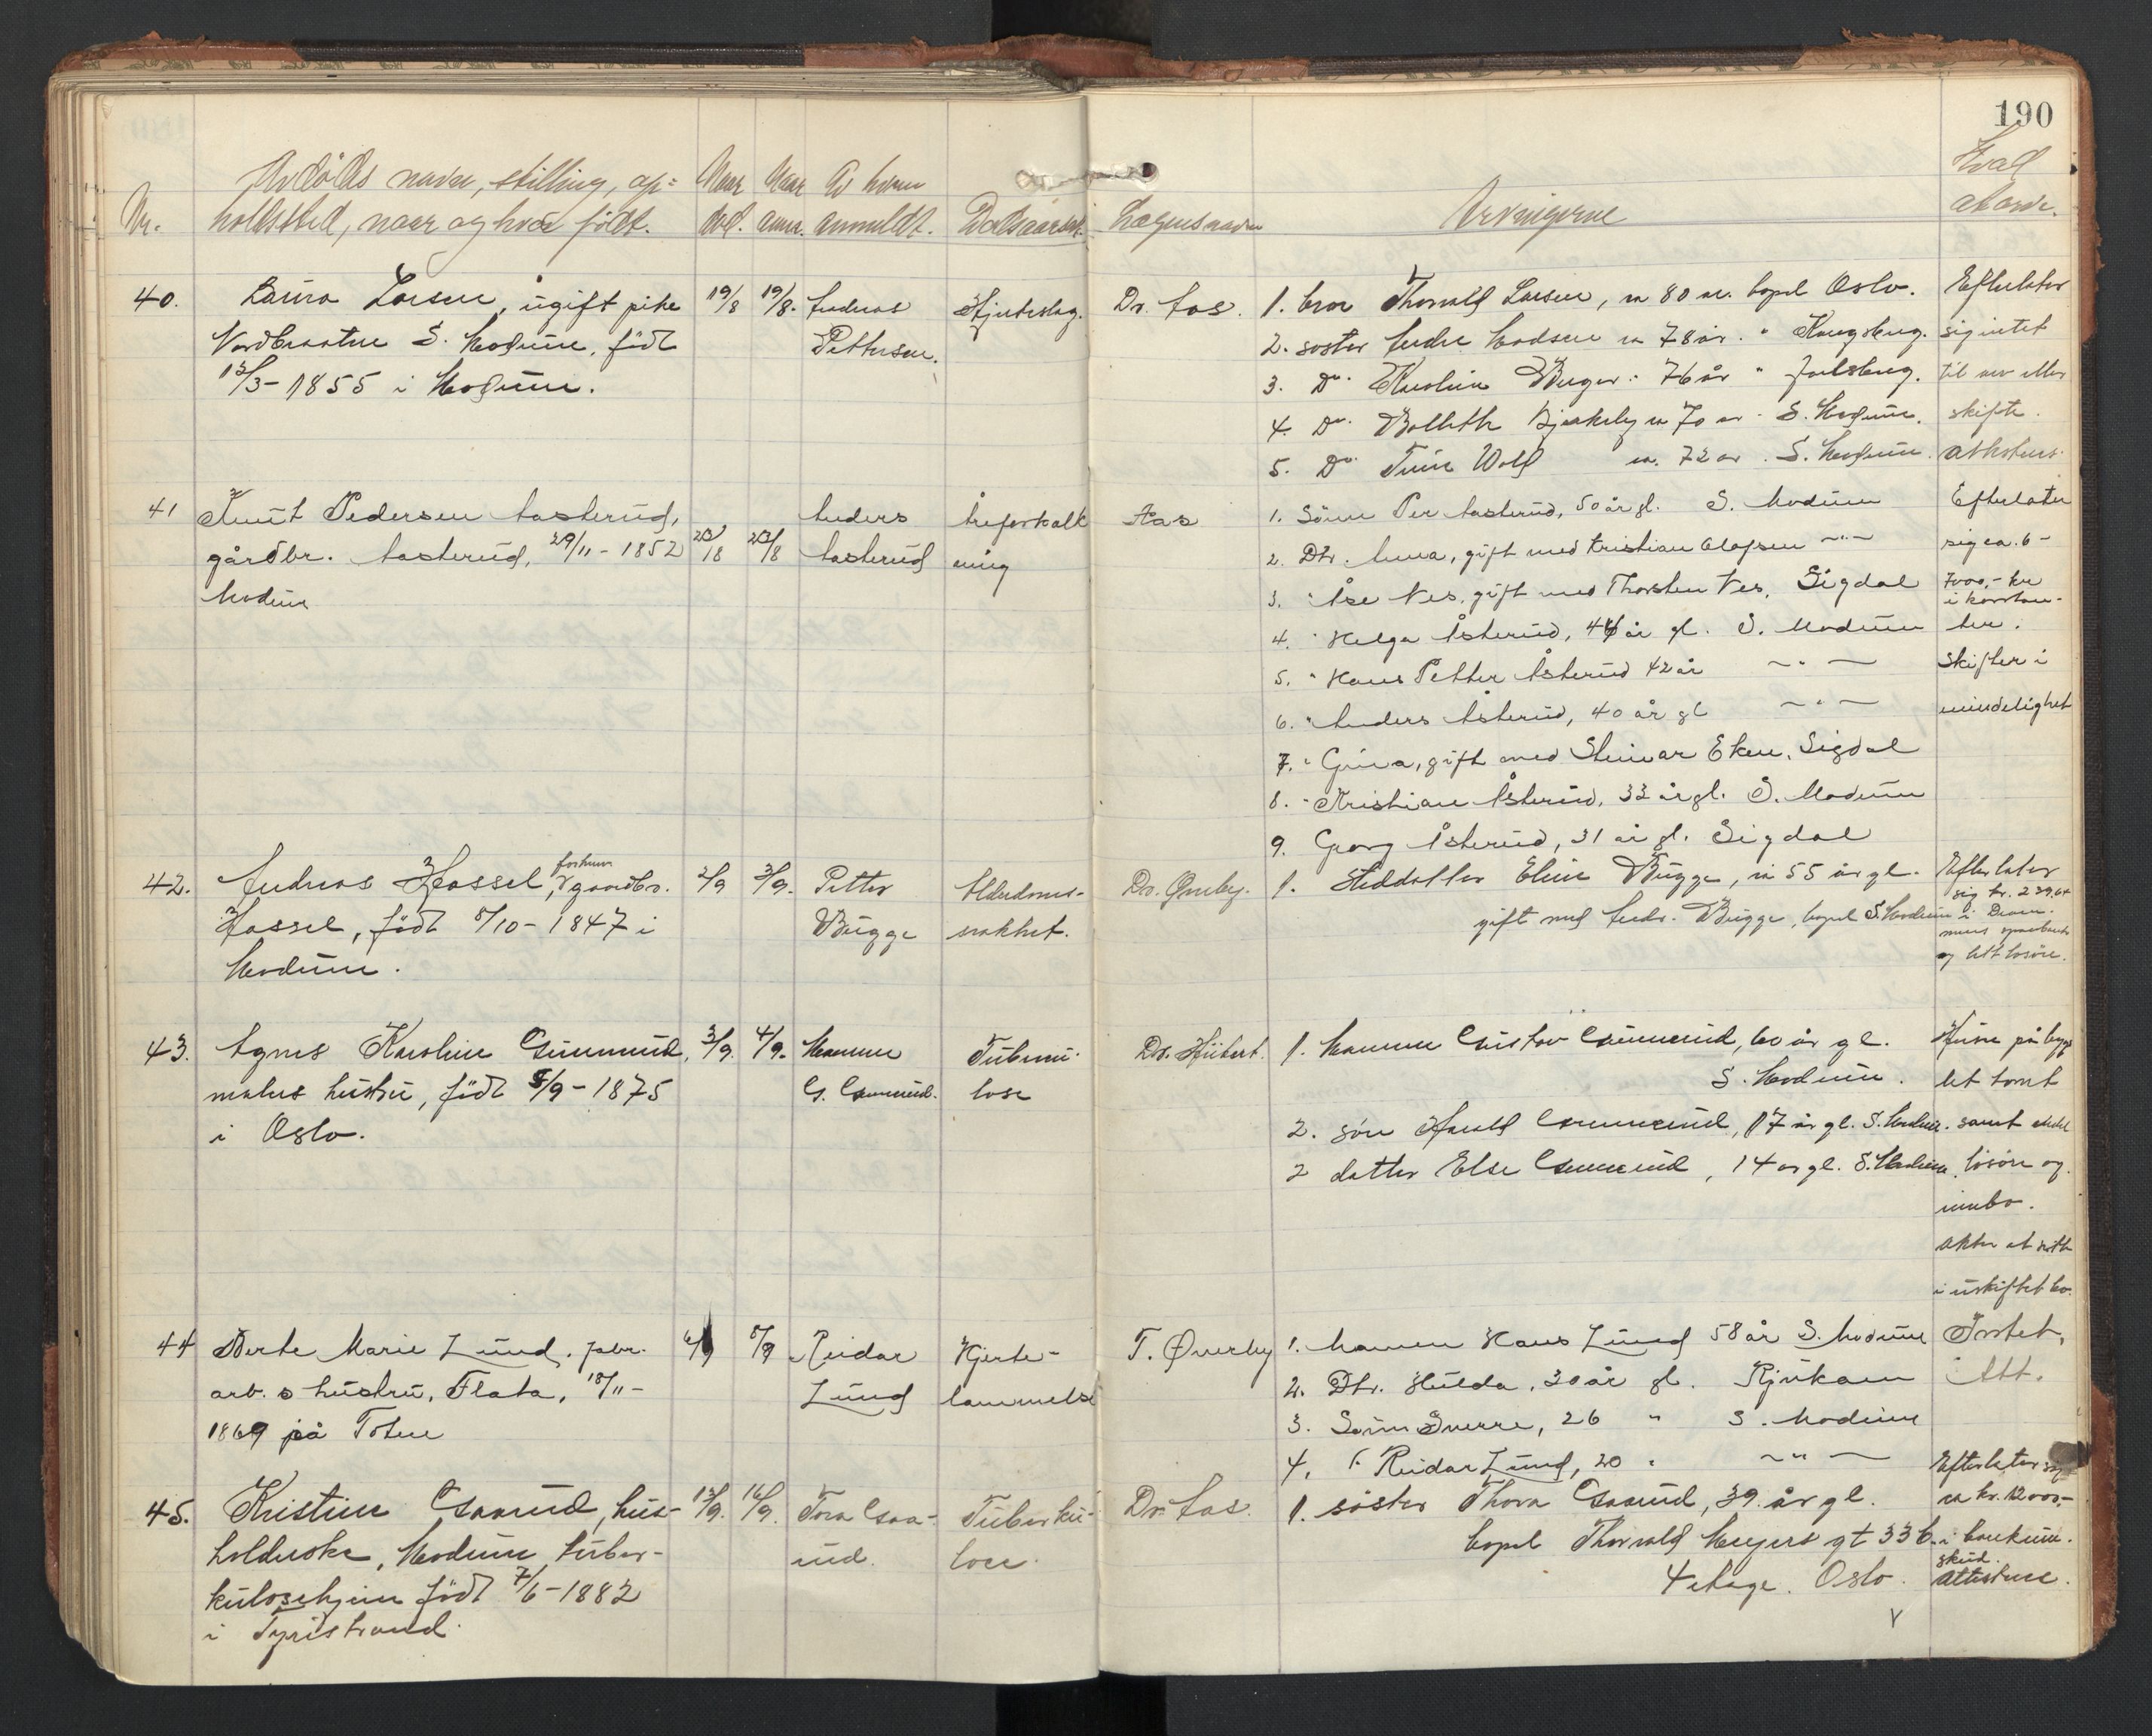 190
Nr.
Avdødes navn, stilling, op-
holdssted, naar og hvor født.
Naar
død.
Naar
anm.
Av hvem
anmeldt.
Dødsaarsak.
Lægens navn
Arvingerne
Hvad
40.
Laura Larsen, ugift pike
Nordbraaten S. Modum, født
13/3-1855 i Modum.
19/8
19/8.
Andreas
Pettersen.
Hjerteslag.
Dr. Aas.
1. bror Thorvald Larsen, ca 80 år. bopel Oslo.
2. søster Andrea Madsen ca 78 år. " Kongsberg.
3. Do. Karoline 76 år "
4. Do. ca 70 år - S. Modum.
5. Do. Wolf ca. 72 år . S. Modum.
Efterlater
sig intet
til arv eller
skifte.
41
Knut Pedersen Aasterud,
gårdbr. Aasterud, 29/11-1852
Modum
23/8
23/8
Anders
Aasterud
Åreforkalk
ning
Aas
1. Sønn Per Aasterud, 50 år gl. S. Modum
2. Dtr. Anna, gift med Kristian Olafsen -"-
3. " Åse Nes, gift med Thorsten Nes, Sigdal
4. " Helga Åsterud, 44 år gl. S. Modum
5. " Hans Petter Åsterud 42 år -"-
6. " Anders Åsterud, 40 år gl -"-
7. " Guna, gift med Steinar Eken, Sigdal
8. " Kristian Åsterud, 33 år gl. S. Modum
9. Georg Åsterud, 31 år gl. Sigdal
Efterlater
sig ca. 6-
7000,- kr
i kontan-
ter.
Skifter i
mindelighet
42.
Andreas Hassel, forhenv. gaardbr.
Hassel, født 8/10-1847 i
Modum.
2/9
3/9.
Petter
Bugge
Alderdoms-
svakhet.
Dr. Øverby.
1. Steddatter Eline Bugge, ca 55 år gl.
gift med Andr. Bugge, bopel S. Modum
Efterlater
sig kr. 239,64
i Dram-
mens sparebank
og litt løsøre.
43.
Agnes Karoline Gunnerud,
malers hustru, født 5/9-1875
i Oslo.
3/9.
4/9.
Mannen
G. Gunnerud.
Tuberku-
lose
Dr. Hübert.
1. Mannen Gustav Gunnerud, 60 år gl.
S. Modum.
2. søn Harald Gunnerud, 17 år gl. S. Modum.
2 datter Else Gunnerud, 14 år gl. S. Modum.
Huse på byg-
let tomt
samt endel
løsøre og
innbo.
Akter at sitte
i uskiftet bo.
44
Berte Marie Lund, fabr.
arb. s hustru, Flata, 18/11-
1869 på Toten
6/9
8/9
Reidar
Lund
Hjerte-
lammelse
T. Øverby
1. Mannen Hans Lund 58 år S. Modum
2. Dtr. Hulda, 30 år gl. Rjukan
3. Sønn Sverre, 26 " S. Modum
4. " Reidar Lund, 20 " -"-
Intet.
Att.
45.
Kristine Gaarud, hus-
holderske, Modum tuber-
kulosehjem født 7/6-1882
i Tyristrand.
15/9.
16/9.
Tora Gaa-
rud.
Tuberku-
lose.
Dr. Aas.
1. søster Thora Gaarud, 39 år gl.
bopel Thorvald Meyers gt 33 b.
4 etage. Oslo.
Efterlater sig
ca kr. 12000,-
i bankinn-
skud.